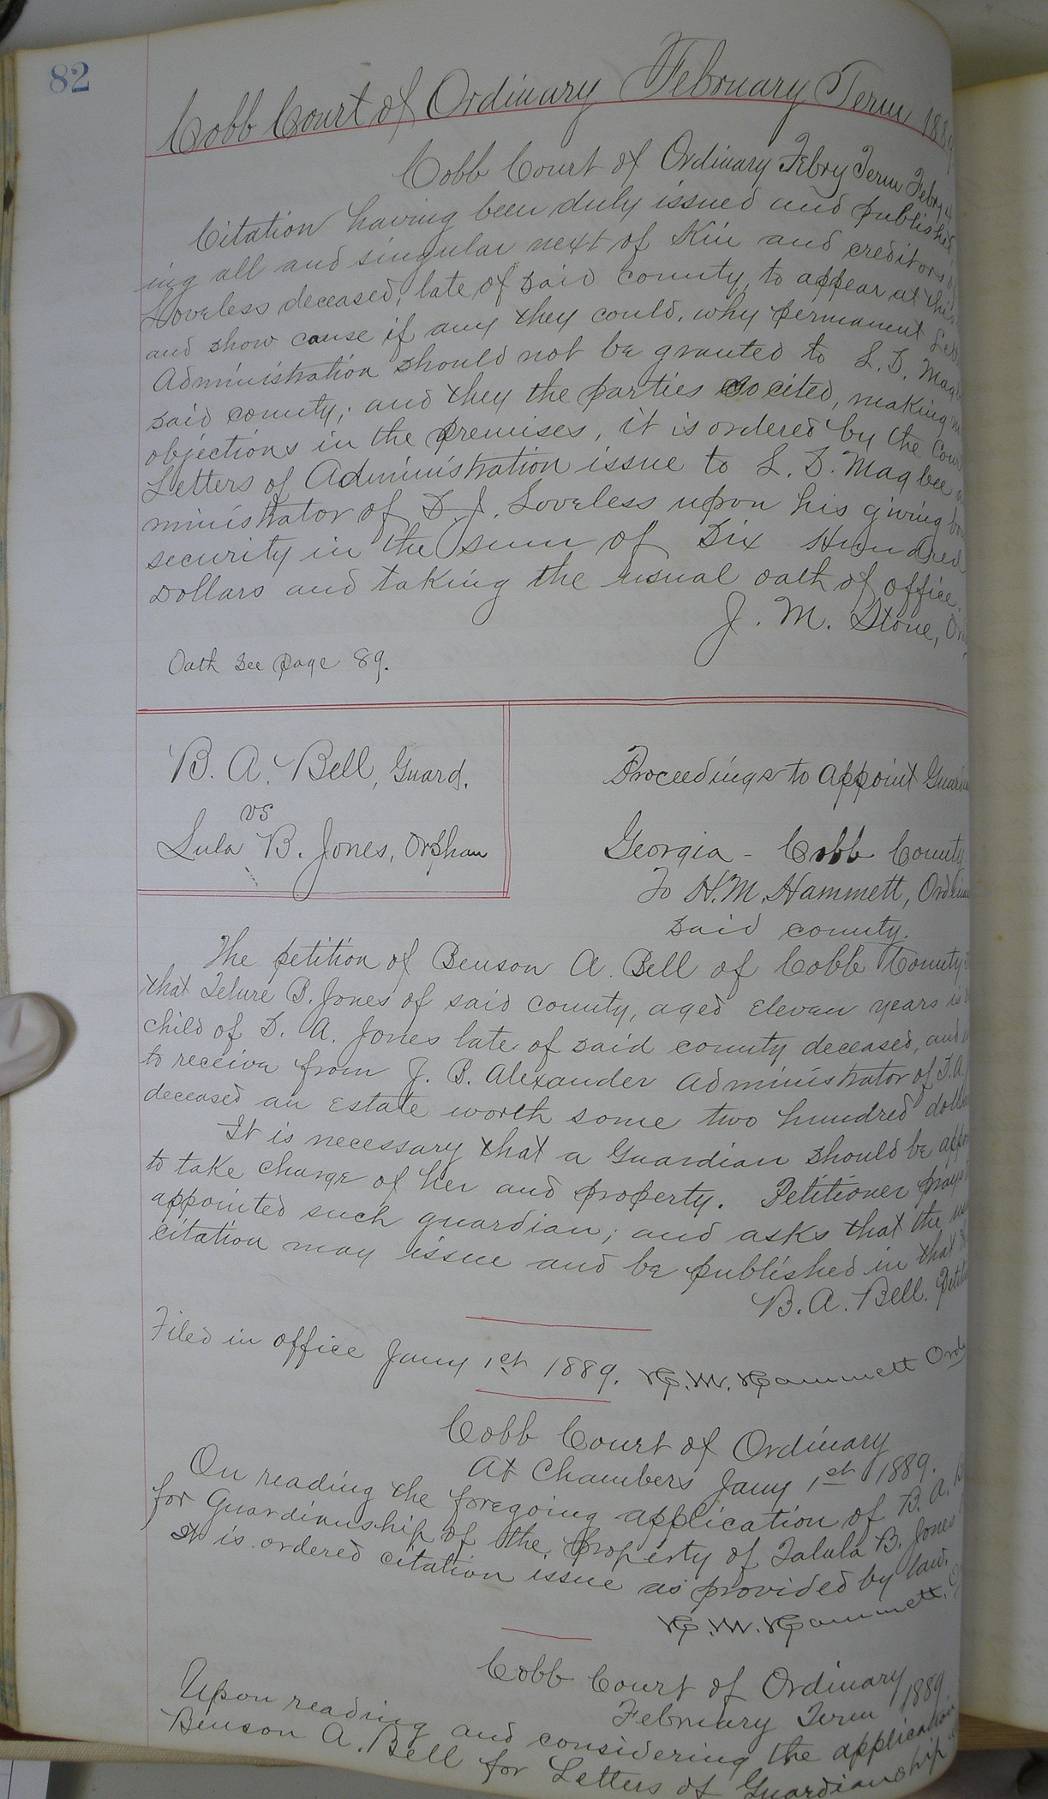 82
Cobb Court of Ordinary February Term 1889
Cobb Court of Ordinary Febry Term Febry 4
Citation having been duly issued and publish
ing all and singular next of Kin and creditors
Loveless deceased, late of said county, to appear at this
and show cause if any they could, why permanent
Administration should not be granted to L. D.
said county; and they the parties so cited, making
objections in the premises, it is ordered by the Cour
Letters of Administration issue to L. D. Magbee
ministrator of D. J. Loveless upon his giving
security in the sum of Six Hundred
Dollars and taking the usual oath of office.
J. M. Stone,
Oath see page 89.
B. A. Bell, Guard.
vs
Lula B. Jones, Orphan
Proceedings to Appoint
Georgia - Cobb County
To H. M. Hammett,
said county.
The petition of Benson A. Bell of Cobb County
that B. Jones of said county, aged Eleven years is
child of A. Jones late of said county deceased, and
to receive from J. B. Alexander Administrator of
deceased an Estate worth some two hundred
It is necessary that a Guardian should be
to take charge of her and property. Petitioner prays
appointed such guardian; and asks that the
citation may issue and be published in that
B. A. Bell.
Filed in office Jany 1st 1889. H. M. Hammett
Cobb Court of Ordinary
At Chambers Jany 1st 1889.
On reading the foregoing application of B. A.
for Guardianship of the property of Talula B. Jones
It is ordered citation issue as provided by law.
H. M. Hammett.
Cobb Court of Ordinary
February Term 1889
Upon reading and considering the application
Benson A. Bell for Letters of Guardianship